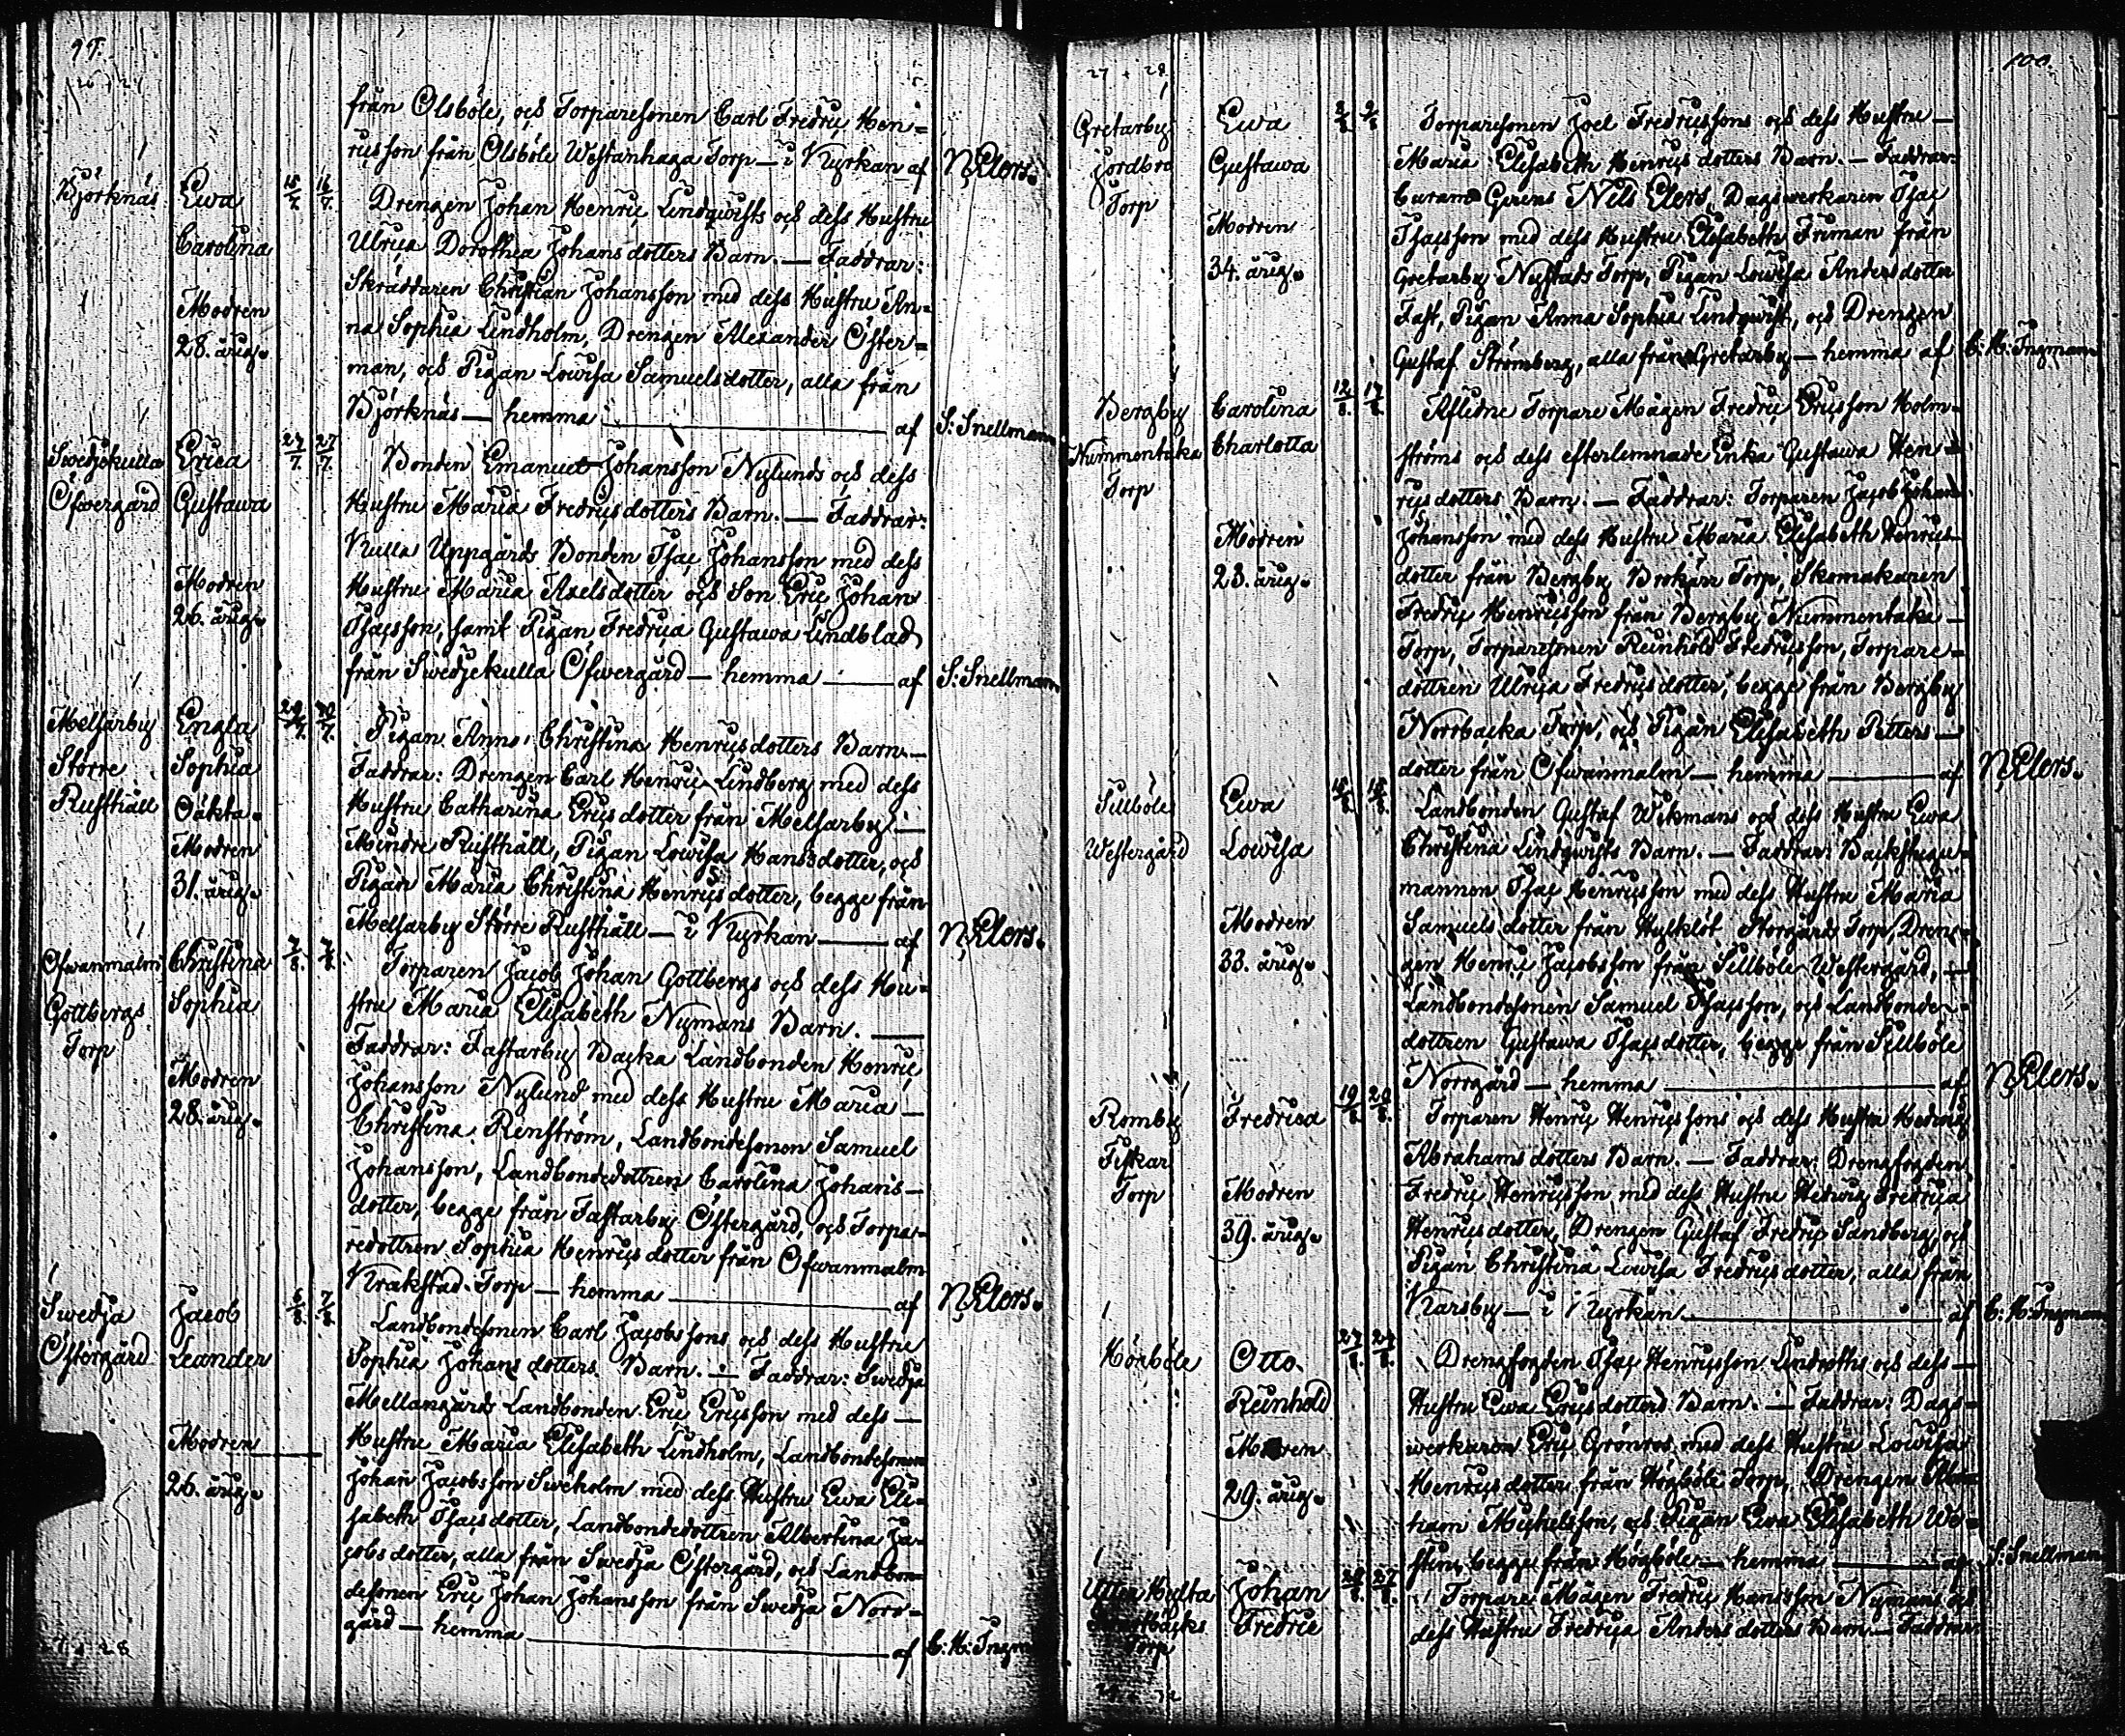 99.
från Olsböle, och Torparesonen Carl Fredric Hen=
ricsson från Olsböle Westanhaga Torp — i Kyrkan af N. Elers.
Björknäs Ewa 15/7. 16/7. Drengen Johan Henric Lindqwists och dess Hustru
Carolina Ulrica Dorothea Johansdotters Barn. — Faddrar:
Skräddaren Christian Johansson med dess Hustru An=
Modren na Sophia Lindholm, Drengen Alexander Öster=
28. årig. man, och Pigan Lowisa Samuelsdotter, alla från
Björknäs — hemma — af S: Snellman
Swedjekulla Erica 27/7. 27/7. Bonden Emanuel Johansson Nylunds och dess
Öfwergård Gustawa Hustru Maria Fredricsdotters Barn. — Faddrar:
Kulla Uppgårds Bonden Isac Johansson med dess
Modren Hustru Maria Axelsdotter och Son Eric Johan
26. årig. Isacsson, samt Pigan Fredrica Gustawa Lindblad
från Swedjekulla Öfwergård — hemma — af S: Snellman
Melsarby Engla 29/7. 30/7. Pigan Anna Christina Henricsdotters Barn. —
Större Sophia Faddrar: Drengen Carl Henric Lindberg med dess
Rusthåll Oäkta. Hustru Catharina Ericsdotter från Melsarby —
Modren Mindre Rusthåll, Pigan Lowisa Hansdotter, och
31. årig. Pigan Maria Christina Henricsdotter, begge från
Melsarby Större Rusthåll — i Kyrkan — af N. Elers.
Ofwanmalm Christina 7/8. 7/8. Torparen Jacob Johan Gottbergs och dess Hu=
Gottbergs Sophia stru Maria Elisabeth Nymans Barn. —
Torp Faddrar: Fastarby Backa Landbonden Henric
Modren Johansson Nylund med dess Hustru Maria —
28. årig. Christina Renström, Landbondesonen Samuel
Johansson, Landbondedottren Carolina Johans—
dotter, begge från Fastarby Östergård, och Torpa=
redottren Sophia Henricsdotter från Ofwanmalm
Krakstad Torp — hemma — af N. Elers.
Swedja Jacob 6/8. 7/8. Landbondesonen Carl Jacobssons och dess Hustru
Östergård Leander Sophia Johansdotters Barn. — Faddrar: Swedja
Mellangårds Landbonden Eric Ericsson med dess —
Modren Hustru Maria Elisabeth Lindholm, Landbondesonen
26. årig. Johan Jacobsson Sweholm med dess Hustru Ewa Eli=
sabeth Isacsdotter, Landbondedottren Albertina Ja=
cobsdotter, alla från Swedja Östergård, och Landbon=
desonen Eric Johan Johansson från Swedja Norr=
gård — hemma — af C: H: Ingm
100.
Gretarby Ewa Torparesonen Joel Fredricssons och dess Hustru —
Jordbro Gustawa Maria Elisabeth Henricsdotters Barn. — Faddrar:
Torp Curam Gerens Nils Elers, Dagswerkaren Isac
Modren Isacsson med dess Hustru Elisabeth Friman från
34. årig. Gretarby Nystads Torp, Pigan Lowisa Andersdotter
Fast, Pigan Anna Sophia Lindqwist, och Drengen
Gustaf Strömberg, alla från Gretarby — hemma af C: H: Ingman
Bergby Carolina 12/8. 17/8. Aflidne Torpare Mågen Fredric Ericsson Holm=
Nummentaka Charlotta ströms och dess efterlemnade Enka Gustawa Hen=
Torp ricsdotters Barn. — Faddrar: Torparen Jacob Johan
Modren Johansson med dess Hustru Maria Elisabeth Henrics=
23. årig. dotter från Bergby Brokärr Torp, Skomakaren
Fredric Henricsson från Bergby Nummentaka —
Torp, Torparesonen Reinhold Fredricsson, Torpare=
dottren Ulrica Fredricsdotter, begge från Bergby
Norrbacka Torp, och Pigan Elisabeth Petters—
dotter från Ofwanmalm — hemma — af N. Elers.
Sillböle Ewa 15/8. 18/8. Landbonden Gustaf Wikmans och dess Hustru Ewa
Westergård Lowisa Christina Lindqwists Barn. — Faddrar: Backstugu=
mannen Isac Henricsson med dess Hustru Maria
Modren Samuelsdotter från Storgård Torp, Dren=
33. årig. gen Henric Jacobsson från Sillböle Westergård, —
Landbondesonen Samuel Isacsson, och Landbonde=
dottren Gustawa Isacsdotter, begge från Sillböle
Norrgård — hemma — af N. Elers.
Romby Fredrica 19/8. 20/8. Torparen Henric Henricssons och dess Hustru Hedwig
Fiskar Abrahamsdotters Barn. — Faddrar: Drengfogden
Torp Modren Fredric Henricsson med dess Hustru Hedwig Fredrica
39. årig. Henricsdotter, Drengen Gustaf Fredric Sandberg, och
Pigan Christina Lowisa Fredricsdotter, alla från
Karsby — i Kyrkan — af C: H: Ingman
Högböle Otto 27/8. 27/8. Drengfogden Isac Henricsson Lindroths och dess —
Reinhold Hustru Ewa Ericsdotters Barn. — Faddrar: Dags=
Modren werkaren Eric Grönros med dess Hustru Lowisa
29. årig. Henricsdotter från Högböle Torp, Drengen Abra=
ham Michelsson, och Pigan Ewa Elisabeth We=
stin, begge från Högböle — hemma — af S: Snellman
Johan Torpare Mågen Fredric Hansson Nymans och
Fredric dess Hustru Fredrica Andersdotters Barn. — Faddrar:
Torp